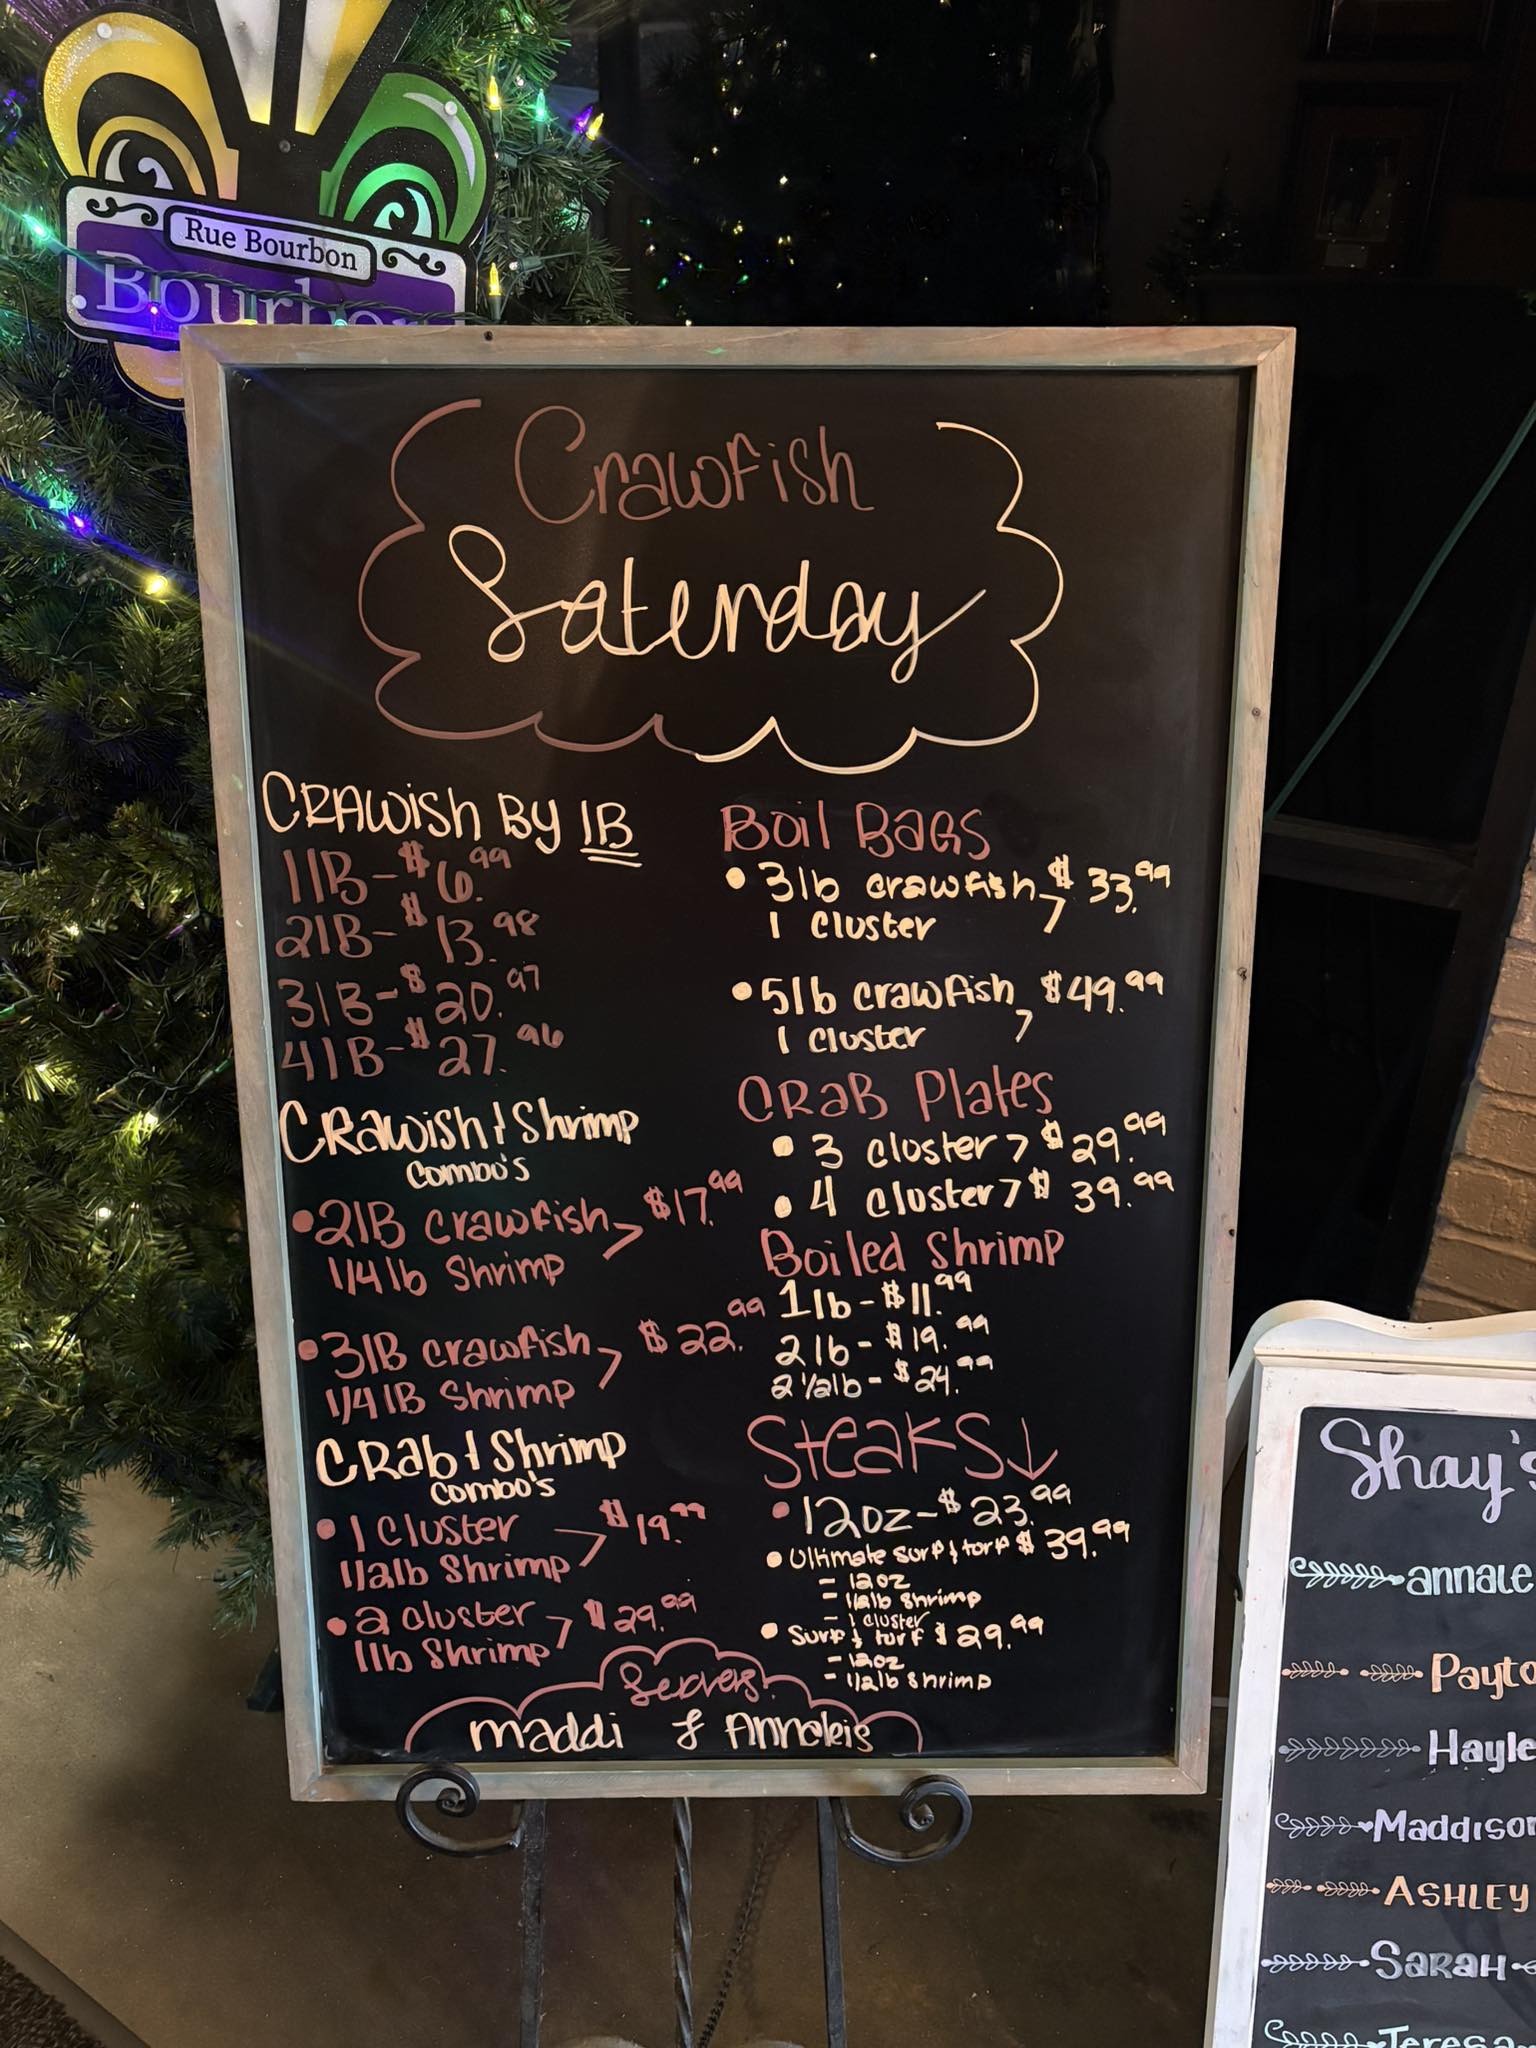 Rue Bourbon
Bourbon
Crawfish
Saterday
CRAWish By 1B
1lB - $6.99
2lB - $13.98
3lB - $20.97
4lB - $27.96
CRAWish & Shrimp
combo's
• 2lB crawfish > $17.99
1/4 lb Shrimp
• 3lB crawfish > $22.99
1/4 lB Shrimp
CRab & Shrimp
combo's
• 1 Cluster > $19.99
1/2lb Shrimp
• 2 cluster > $29.99
1lb Shrimp
Boil BAGS
• 3lb crawfish > $33.99
1 cluster
• 5lb crawfish > $49.99
1 cluster
CRAB Plates
• 3 cluster > $29.99
• 4 cluster > $39.99
Boiled Shrimp
1lb - $11.99
2lb - $19.99
2 1/2lb - $24.99
Steaks ↓
• 12oz - $23.99
• Ultimate surf & torf $39.99
- 12oz
- 1/2lb shrimp
- 1 cluster
• Surf & turf $29.99
- 12oz
- 1/2lb shrimp
Servers:
maddi & Annaleis
Shay's
annale
Payto
Hayle
Maddison
ASHLEY
SARAH
Teresa